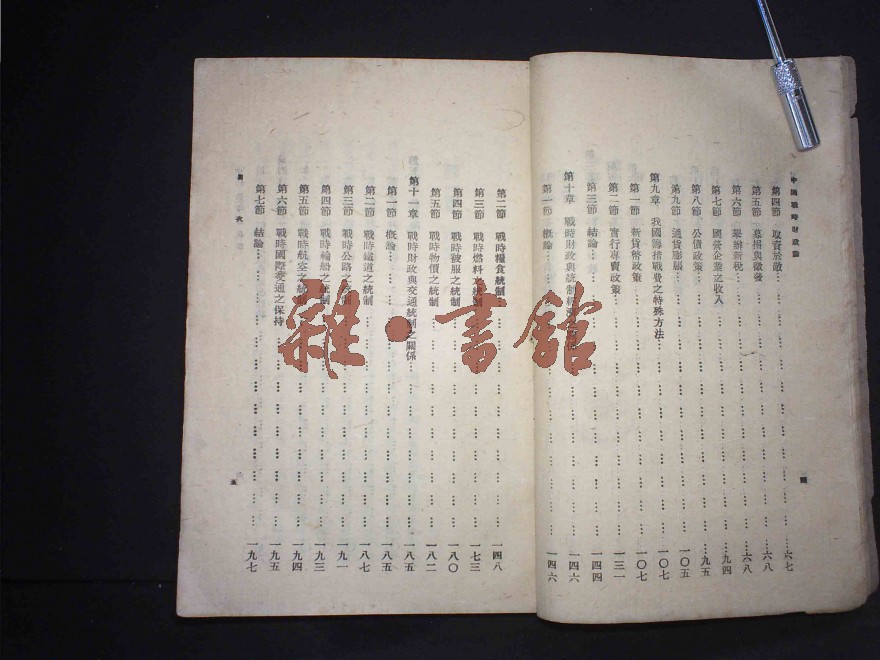 中國戰時財政論
第四節 取資於敵…………六七
第五節 募捐與徵發…………六八
第六節 舉辦新稅…………六八
第七節 國營企業之收入…………九四
第八節 公債政策…………九五
第九節 通貨膨脹…………一〇五
第九章 我國籌措戰費之特殊方法…………一〇七
第一節 新貨幣政策…………一〇七
第二節 實行專賣政策…………一三一
第三節 結論…………一四四
第十章 戰時財政與統制經濟之…………一四六
第一節 概論…………一四六
四
第二節 戰時糧食統制…………一四八
第三節 戰時燃料之統制…………一七三
第四節 戰時被服之統制…………一八〇
第五節 戰時物價之統制…………一八二
第十一章 戰時財政與交通統制之關係…………一八五
第一節 概論…………一八五
第二節 戰時鐵道之統制…………一八七
第三節 戰時公路之統制…………一九一
第四節 戰時輪船之統制…………一九三
第五節 戰時航空之統制…………一九四
第六節 戰時國際交通之保持…………一九五
第七節 結論…………一九七
目 次
五
雜·書館